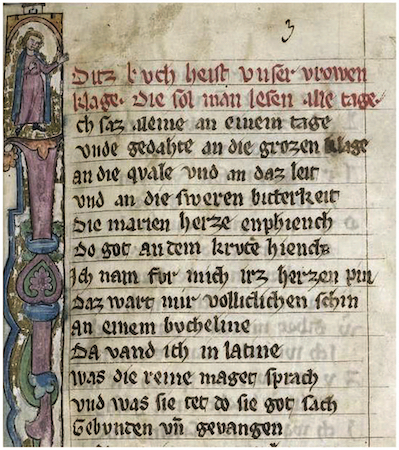 3
Ditz buch heist vnser vrowen
klage. Die sol man lesen alle tage.
ch saz aleine an einem tage
vnde gedahte an die grozen klage
an die quale vnd an daz leit
vnd an die sweren bitterkeit
Die marien herze enphiench
Do got an dem kruce hiench
Ich nam for mich irz herzen pin
Daz wart mir volliclichen schin
an einem bucheline
Da vand ich in latine
was die reine maget sprach
vnd was sie tet do sie got sach
Gebunden vn̄ gevangen